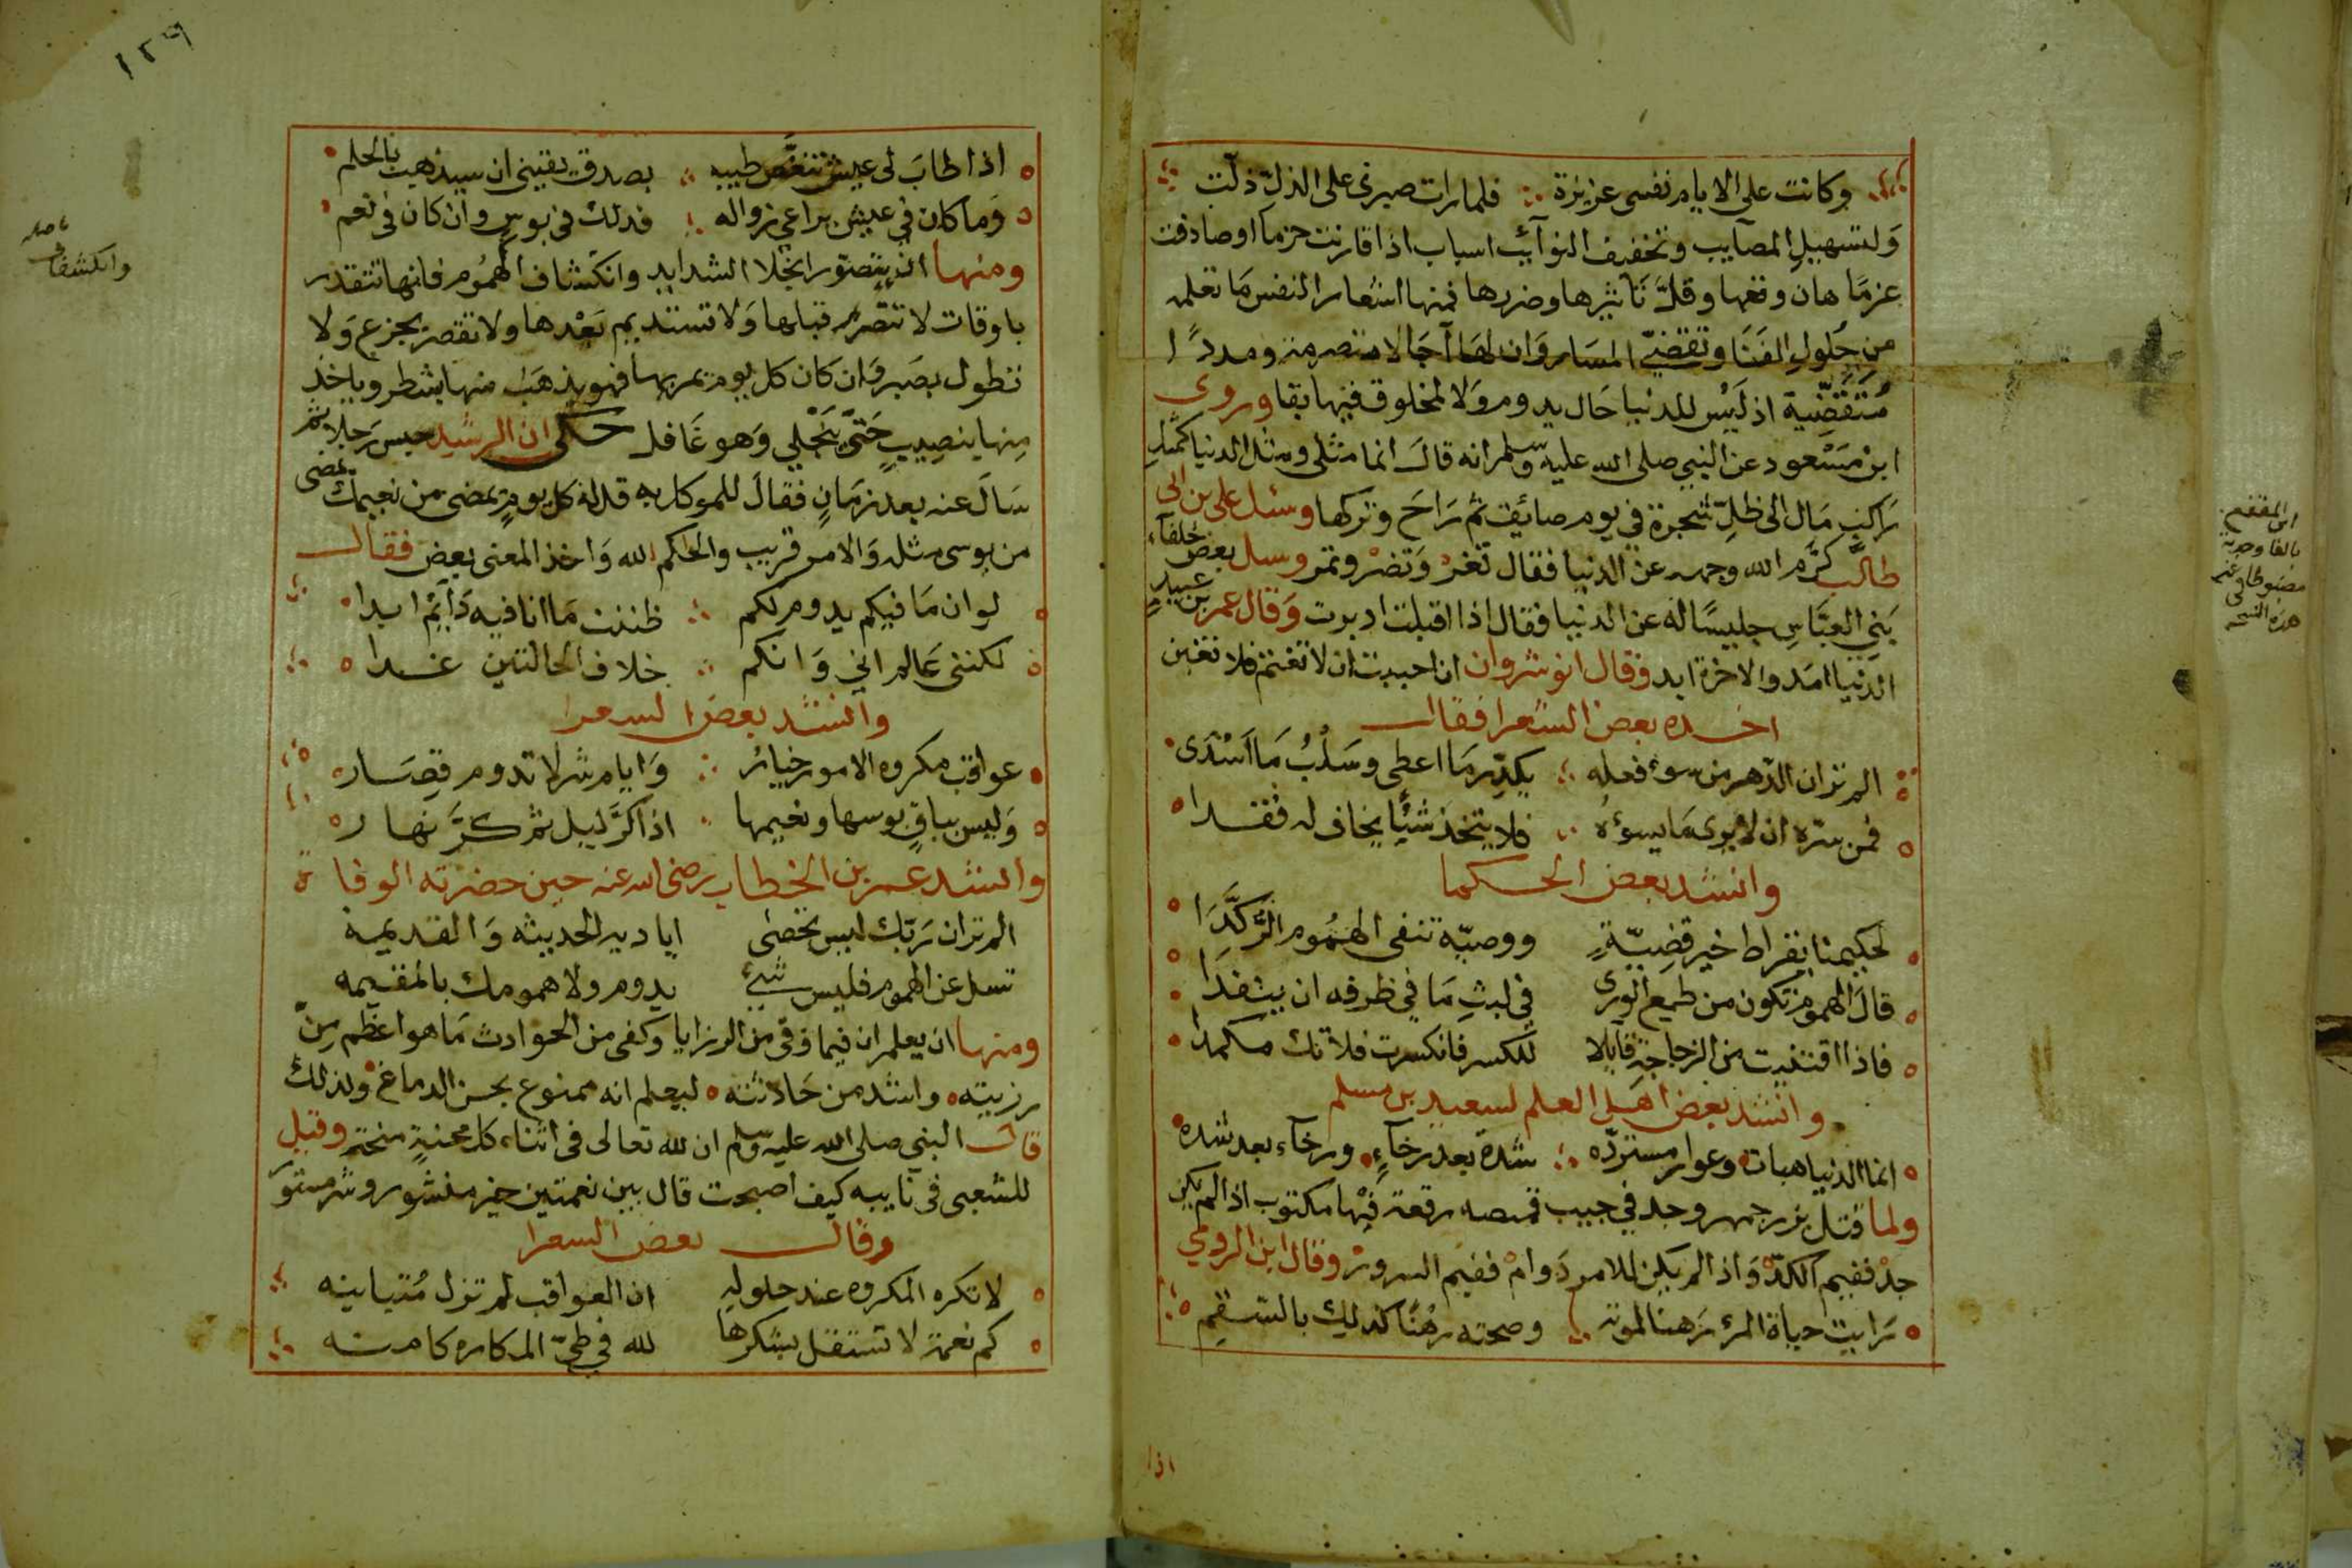 وكانت على الايام نفسى عزيزة فلما رات صبرى على الذل ذلت
وَلتسهيل المصآيب وتخفيف النوآئب اسباب اذا قارنت حزما او صادفت
عزمًا هان وقعها وقلَّ تاثيرها وضررها فمنها اشعار النفس مَا تعلمه
من حُلولِ الفَنَا وتقضّي المسَار وَان لهَا آجَالا منصرمة ومددًا
مُتَقَضِّية اذ ليْس للدنيا حَال يدوم وَلا لمخلوق فيها بقا وروى
ابن مَسْعود عن النبي صلى الله عليه وسلم انه قالَ انما مثلى ومثل الدنيا كمثلِ
رَاكبٍ مَال الى ظلِّ شجرة في يوم صائف ثم رَاحَ وتركها وسئل على بن ابى
طالب كرَّم الله وجهه عن الدنيا فقال تغرْ وَتضرْ وتمر وسل بعض خلفآء
بَني العبَّاسِ جليسًا له عن الدنيا فقال اذا اقبلت ادبرت وَقال عمر بن عبيد
الدنيا امَد والاخرة ابد وقال انوشروان ان احببت ان لا تغتم فلا تغبن
اخـذه بعض الشعرا فقال
الم تر ان الدّهر من سوء فعله يكدِّر مَا اعطى وسَلْبُ مَا اَسْدَى
فمن سَرّه ان لا يرى مَا يسوءه فلا يتخذ شيئًا يخاف له فقـدا
وانشد بعض الحـكما
لحكيمنا بقراط خير قضيّةٍ ووصيّه تنفى الهمُوم الرُّكَّدَا
قالَ الهموم تكون من طمع الورى في لبثِ مَا في ظرفه ان ينفدَا
فاذا اقتنيت من الزجاجة قابلا للكسر فانكسرت فلا تك مكمدا
وانشد بعض اهل العلم لسعيد بن مسلم
انما الدنيا هبات وعوار مستردّه شدة بعد رخآءٍ ورخآء بعد شده
ولما قتل بزرجمهر وجد في جيب قمصه رقعة فيْها مكتوب اذا لم يكن
جدْ ففيم الكدّ وَاذ الم يكن للامر دَوامْ ففيم السرورْ وقال ابن الرومي
رَايت حياة المرء رَهنا لموته وصحته رهْنًا كذلك بالسقم
اذا
ابن المقفع
بالقا وجدته
مضبوطا فى غير
هذه النسخه
١٢٩
اذا طابَ لى عيش تنغّص طيبه بصدق يقينى ان سيذهب بالحلم
وَما كان في عيش يراعى زواله فذلك في بوس وان كان في نعم
ومنهـا ان يتصوّر انجلا الشدايد وانكشاف الهمُوم فانها تتقدر
باوقات لا تتصرم قبلها وَلا تستديم بَعْدها ولا تقصر بجزع وَلا
تطول بصَبر وَان كان كل يوم يمر بهـا فهو يذهَبْ منها بشطر وياخذ
مِنها بنصِيبٍ حَتّى تنجَلي وَهو غَافل حـكى ان الرشيد حبس رَجلا ثم
سَالَ عنه بعد زمَانٍ فقالَ للموكل به قل له كل يومٍ يمضى من نعيمك يمضى
من بوسى مثله وَالامر قريب والحكم لله وَاخذ المعنى بعض فقال
لو ان مَا فيكم يدوم لكم ظننت مَا انا فيه دَآئمْ ابدا
لكننى عَالم اني وَانكم خلاف الحالتين غـدا
وانشد بعض الشعرا
عواقب مكروه الامور خيائر وَايام شر لا تدوم قصَار
وَليس بباقٍ بوسها ونعيمها اذا كرَّ ليل ثم كرَّ نهار
وانشد عمر بن الخطاب رضى الله عنه حين حضرته الوفاة
الم تر ان رَبّك ليس تحصَى اياديه الحديثه وَالقديمه
تسل عن الهموم فليس شئ يدوم ولا همومك بالمقيمه
ومنهـا ان يعلم ان فيما وقى من الرزايا وكفى من الحوادث مَا هو اعظم مِن
رزيته واشد من حَادثته ليعلم انه ممنوع بحسن الدماغ ولذلك
قال النبي صلى الله عليه وسلم ان لله تعالى فى اثناء كل محنةٍ منحة وقيل
للشعبى فى نايبه كيف اصبحت قال بين نعمتين خير منشور وشر مستوَر
وقال بعض الشعرا
لا تكره المكروه عند حلوله ان العواقب لم تزل مُتباينه
كم نعمة لا تستقل بشكرها لله في طيّ المكاره كامنـه
وانكشفاف